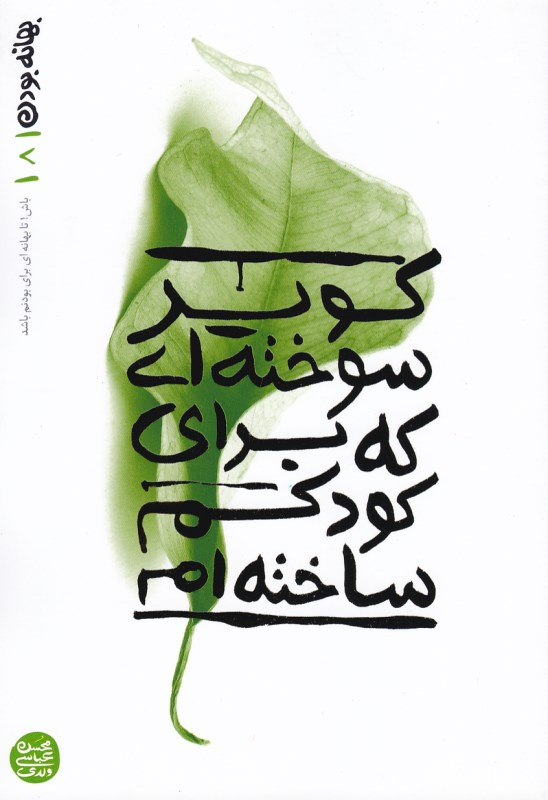 بهانه بودن
۸
باش! تا بهانه ای برای بودنم باشد
کویر
سوخته‌ای
که برای
کودکم
ساخته‌ام
محسن
عباسی
ولدی